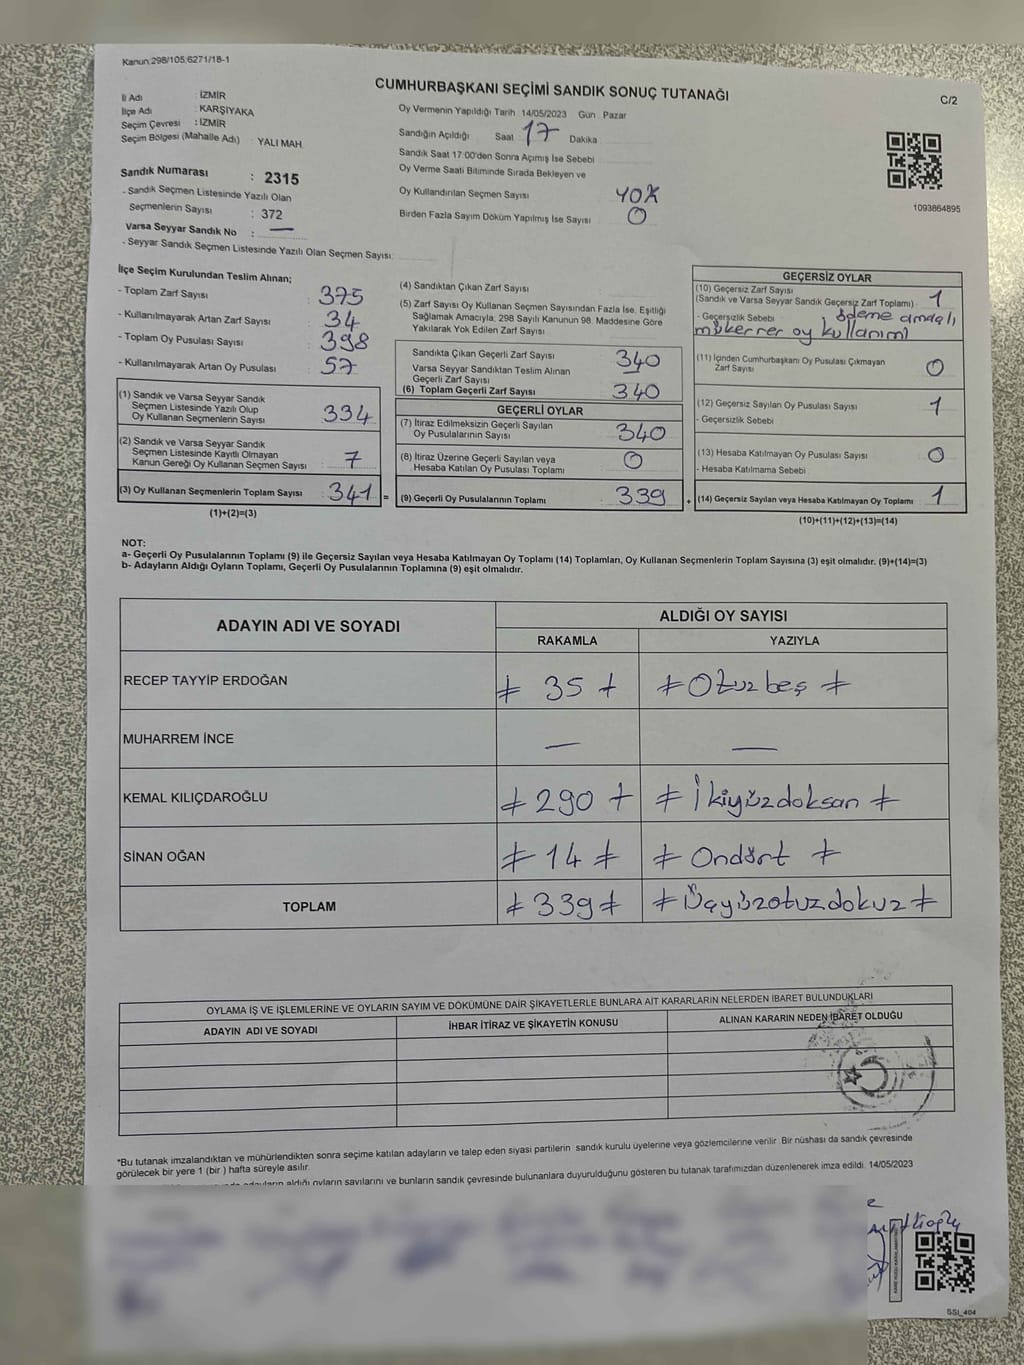 Kanun:298/105,6271/18-1
CUMHURBAŞKANI SEÇİMİ SANDIK SONUÇ TUTANAĞI
C/2
İl Adı : İZMİR
İlçe Adı : KARŞIYAKA
Seçim Çevresi : İZMİR
Seçim Bölgesi (Mahalle Adı) YALI MAH.
Sandık Numarası : 2315
- Sandık Seçmen Listesinde Yazılı Olan
Seçmenlerin Sayısı : 372
Varsa Seyyar Sandık No : —
- Seyyar Sandık Seçmen Listesinde Yazılı Olan Seçmen Sayısı:
Oy Vermenin Yapıldığı Tarih 14/05/2023 Gün Pazar
Sandığın Açıldığı Saat 17 Dakika
Sandık Saat 17:00'den Sonra Açımış İse Sebebi
Oy Verme Saati Bitiminde Sırada Bekleyen ve
Oy Kullandırılan Seçmen Sayısı
Birden Fazla Sayım Döküm Yapılmış İse Sayısı 0
1093864895
İlçe Seçim Kurulundan Teslim Alınan;
- Toplam Zarf Sayısı : 375
- Kullanılmayarak Artan Zarf Sayısı : 34
- Toplam Oy Pusulası Sayısı : 398
- Kullanılmayarak Artan Oy Pusulası : 57
(1) Sandık ve Varsa Seyyar Sandık
Seçmen Listesinde Yazılı Olup
Oy Kullanan Seçmenlerin Sayısı : 334
(2) Sandık ve Varsa Seyyar Sandık
Seçmen Listesinde Kayıtlı Olmayan
Kanun Gereği Oy Kullanan Seçmen Sayısı : 7
(3) Oy Kullanan Seçmenlerin Toplam Sayısı : 341 =
(1)+(2)=(3)
(4) Sandıktan Çıkan Zarf Sayısı
(5) Zarf Sayısı Oy Kullanan Seçmen Sayısından Fazla İse, Eşitliği
Sağlamak Amacıyla, 298 Sayılı Kanunun 98. Maddesine Göre
Yakılarak Yok Edilen Zarf Sayısı
Sandıkta Çıkan Geçerli Zarf Sayısı 340
Varsa Seyyar Sandıktan Teslim Alınan
Geçerli Zarf Sayısı
(6) Toplam Geçerli Zarf Sayısı 340
GEÇERLİ OYLAR
(7) İtiraz Edilmeksizin Geçerli Sayılan
Oy Pusulalarının Sayısı 340
(8) İtiraz Üzerine Geçerli Sayılan veya
Hesaba Katılan Oy Pusulası Toplamı 0
(9) Geçerli Oy Pusulalarının Toplamı 339 +
GEÇERSİZ OYLAR
(10) Geçersiz Zarf Sayısı
(Sandık ve Varsa Seyyar Sandık Geçersiz Zarf Toplamı) : 1
- Geçersizlik Sebebi : ödeme amaçlı
mükerrer oy kullanımı
(11) İçinden Cumhurbaşkanı Oy Pusulası Çıkmayan
Zarf Sayısı 0
(12) Geçersiz Sayılan Oy Pusulası Sayısı 1
- Geçersizlik Sebebi
(13) Hesaba Katılmayan Oy Pusulası Sayısı : 0
- Hesaba Katılmama Sebebi
(14) Geçersiz Sayılan veya Hesaba Katılmayan Oy Toplamı : 1
(10)+(11)+(12)+(13)=(14)
NOT:
a- Geçerli Oy Pusulalarının Toplamı (9) ile Geçersiz Sayılan veya Hesaba Katılmayan Oy Toplamı (14) Toplamları, Oy Kullanan Seçmenlerin Toplam Sayısına (3) eşit olmalıdır. (9)+(14)=(3)
b- Adayların Aldığı Oyların Toplamı, Geçerli Oy Pusulalarının Toplamına (9) eşit olmalıdır.
ADAYIN ADI VE SOYADI
ALDIĞI OY SAYISI
RAKAMLA YAZIYLA
RECEP TAYYİP ERDOĞAN ≠ 35 ≠ ≠ Otuzbeş ≠
MUHARREM İNCE — —
KEMAL KILIÇDAROĞLU ≠ 290 ≠ ≠ İkiyüzdoksan ≠
SİNAN OĞAN ≠ 14 ≠ ≠ Ondört ≠
TOPLAM ≠ 339 ≠ ≠ Üçyüzotuzdokuz ≠
OYLAMA İŞ VE İŞLEMLERİNE VE OYLARIN SAYIM VE DÖKÜMÜNE DAİR ŞİKAYETLERLE BUNLARA AİT KARARLARIN NELERDEN İBARET BULUNDUKLARI
ADAYIN ADI VE SOYADI İHBAR İTİRAZ VE ŞİKAYETİN KONUSU ALINAN KARARIN NEDEN İBARET OLDUĞU
*Bu tutanak imzalandıktan ve mühürlendikten sonra seçime katılan adayların ve talep eden siyasi partilerin sandık kurulu üyelerine veya gözlemcilerine verilir. Bir nüshası da sandık çevresinde
görülecek bir yere 1 (bir) hafta süreyle asılır.
adayların aldığı oyların sayılarını ve bunların sandık çevresinde bulunanlara duyurulduğunu gösteren bu tutanak tarafımızdan düzenlenerek imza edildi. 14/05/2023
SSI_404